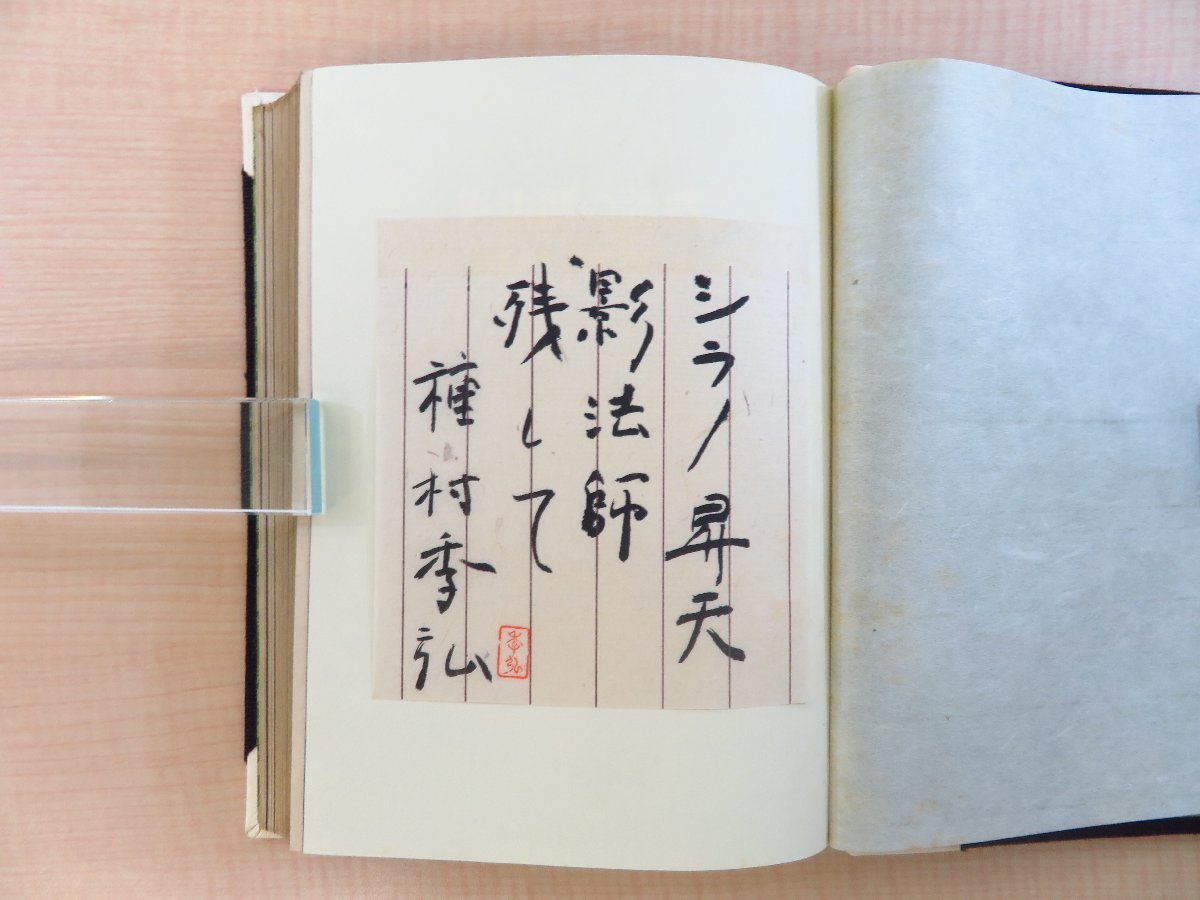 シラノ昇天
影法師
残して
種村季弘
季弘